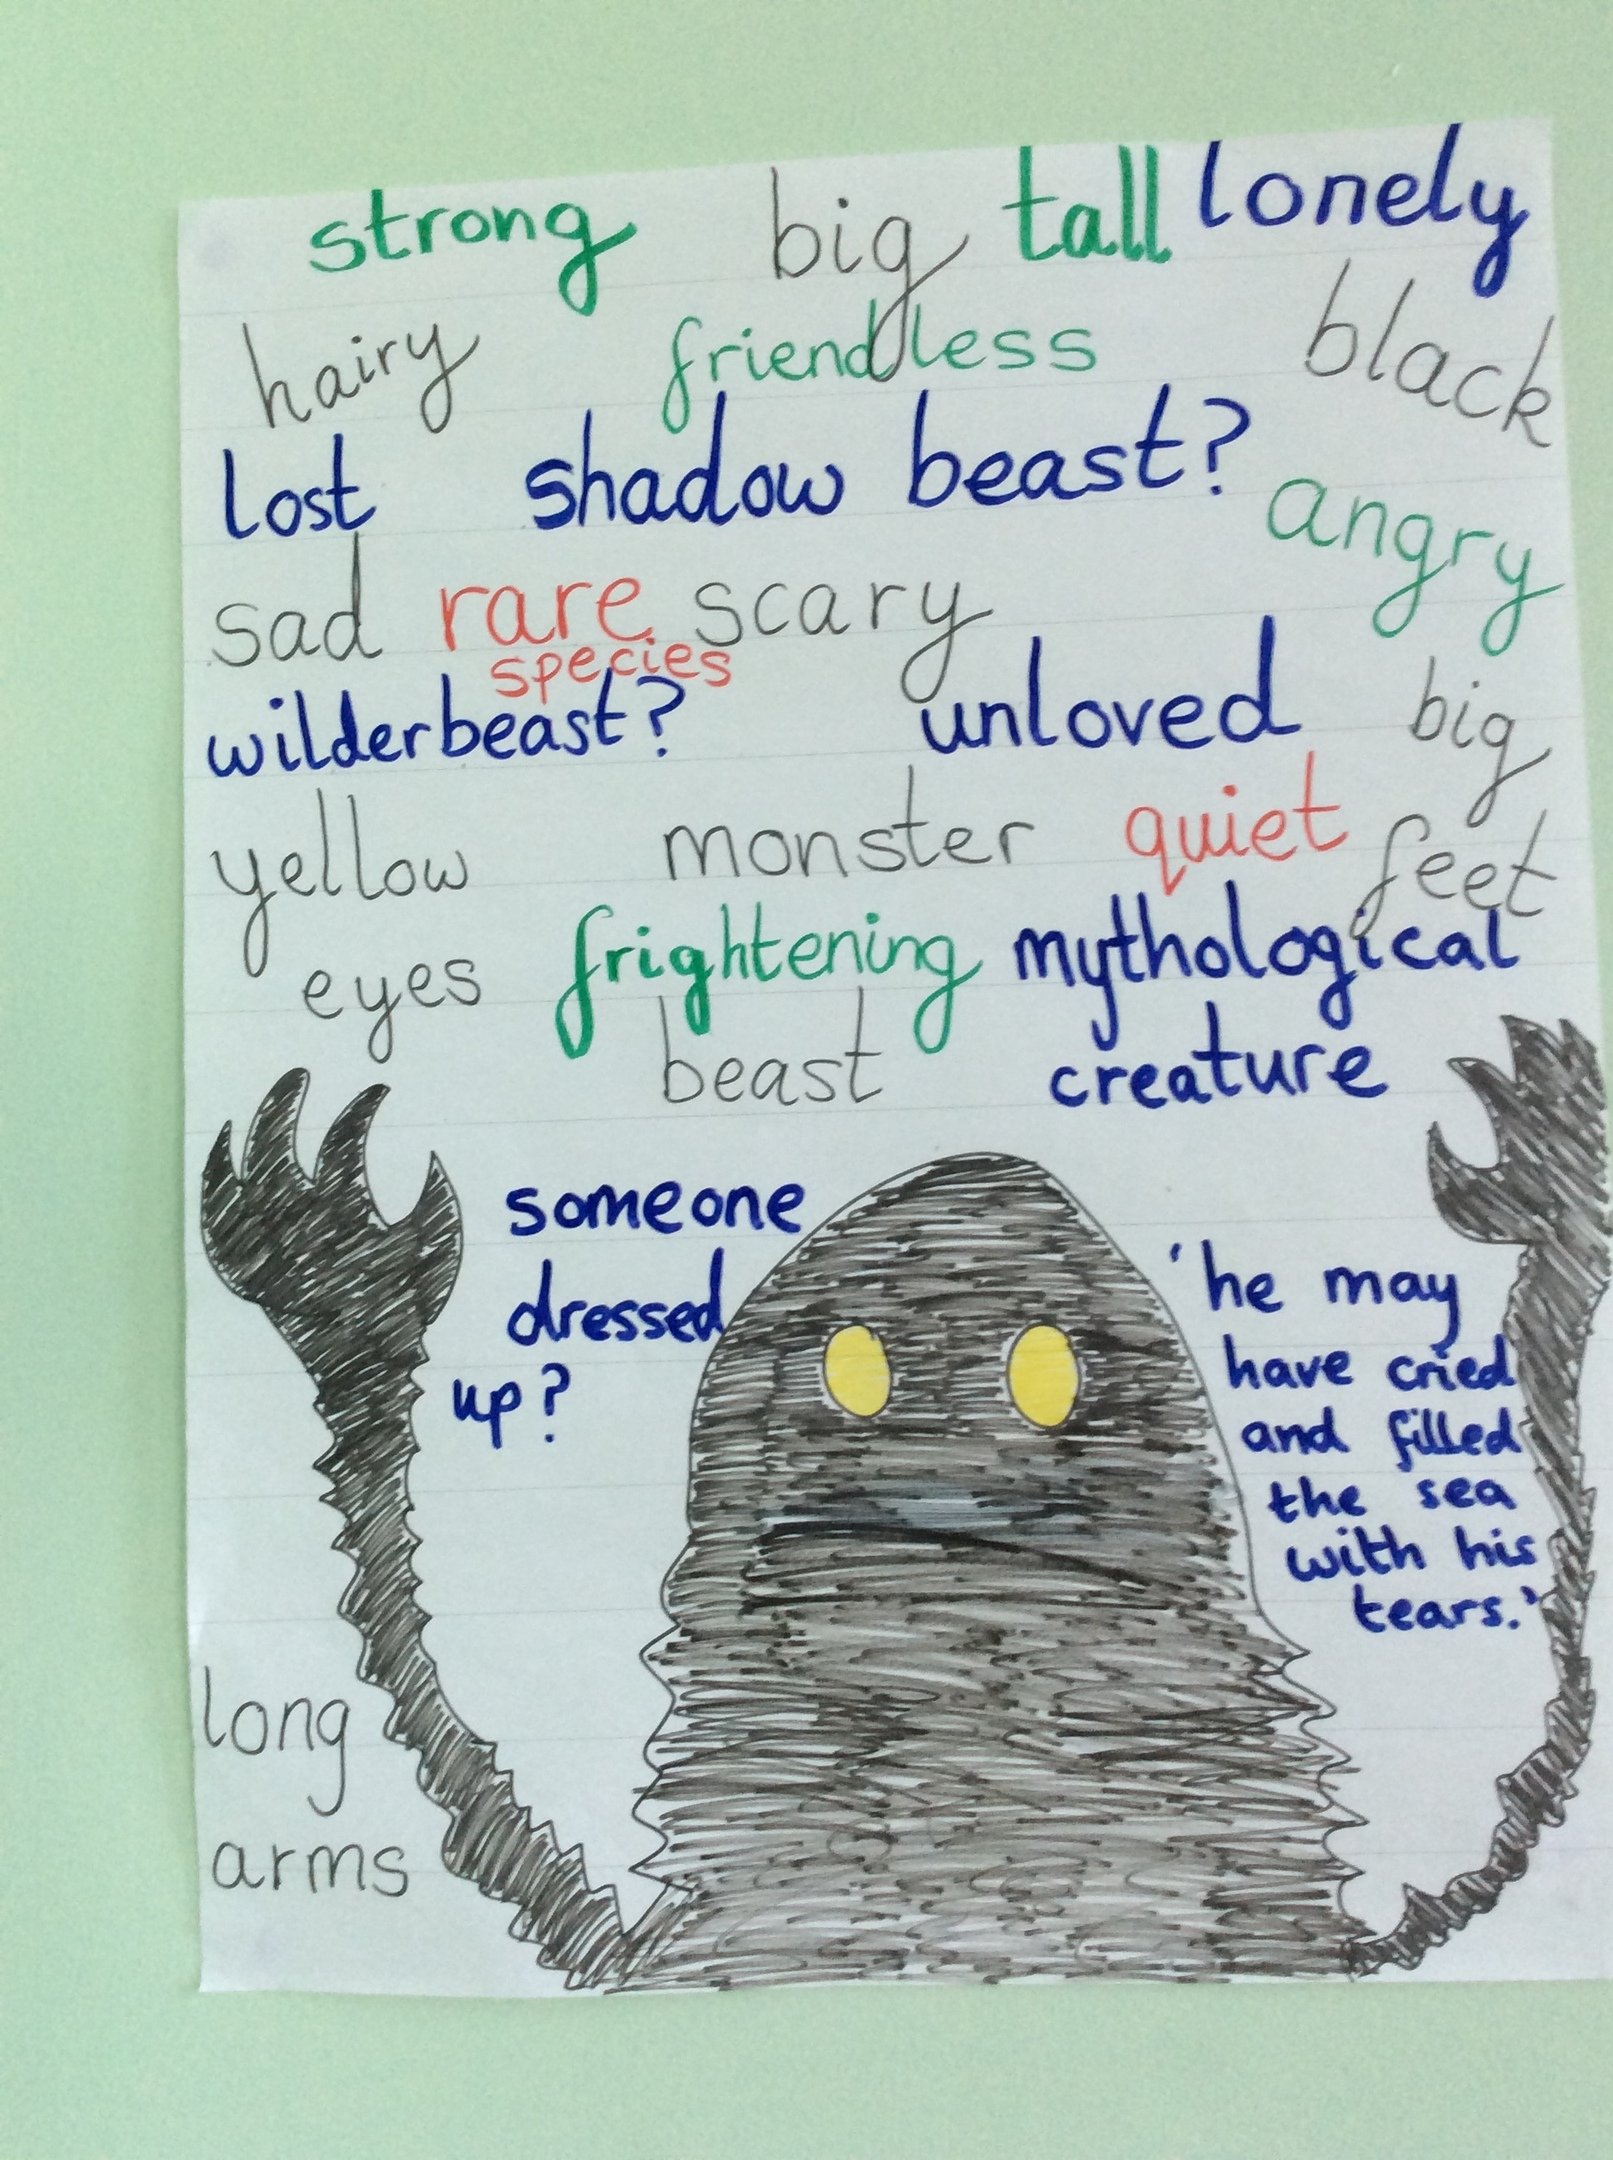 strong big tall lonely
hairy friendless black
lost shadow beast? angry
sad rare scary
species
wilderbeast? unloved big
yellow monster quiet feet
eyes frightening mythological
beast creature
someone
dressed
up?
'he may
have cried
and filled
the sea
with his
tears.'
long
arms